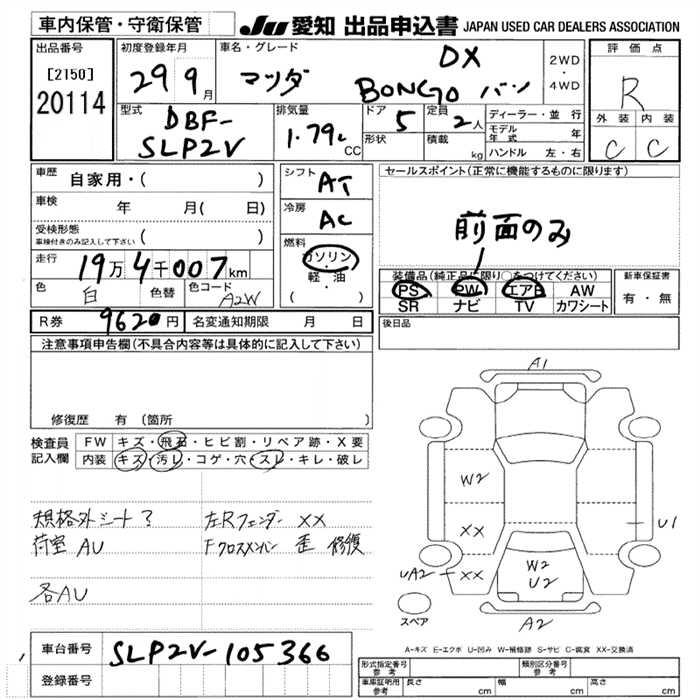 車内保管・守衛保管
JU 愛知 出品申込書 JAPAN USED CAR DEALERS ASSOCIATION
出品番号
[2150]
20114
初度登録年月
29 9月
車名・グレード
マツダ BONGO バン DX
2WD
・
4WD
評価点
R
外装 内装
C C
型式
DBF-
SLP2V
排気量
1.79L
CC
ドア
5
形状
定員
2人
積載
kg
ディーラー・並行
モデル年式 年
ハンドル 左・右
車歴
自家用・( )
車検
年 月( 日)
受検形態
車検付きのみ記入して下さい ( )
走行
19万4千007km
色
白
色替
色コード
A2W
シフト
AT
冷房
AC
燃料
ガソリン
・
軽・油
( )
セールスポイント(正常に機能するものに限ります)
前面のみ
装備品(純正品に限り○をつけてください)
PS PW エアB AW
SR ナビ TV カワシート
新車保証書
有・無
R券 9620円
名変通知期限 月 日
後日品
注意事項申告欄(不具合内容等は具体的に記入して下さい)
修復歴 有(箇所 )
検査員
記入欄
FW キズ・飛石・ヒビ割・リペア跡・X要
内装 キズ・汚レ・コゲ・穴・スレ・キレ・破レ
規格外シート?
荷室AU
各AU
左Rフェンダー XX
Fクロスメンバー 歪 修復
A1
W2
XX
U1
UA2 XX
W2
U2
スペア
A2
A-キズ E-エクボ U-凹み W-補修跡 S-サビ C-腐食 XX-交換済
車台番号
SLP2V-105366
登録番号
形式指定番号
参考
類別区分番号
参考
車庫証明用
参考
長さ cm 幅 cm 高さ cm